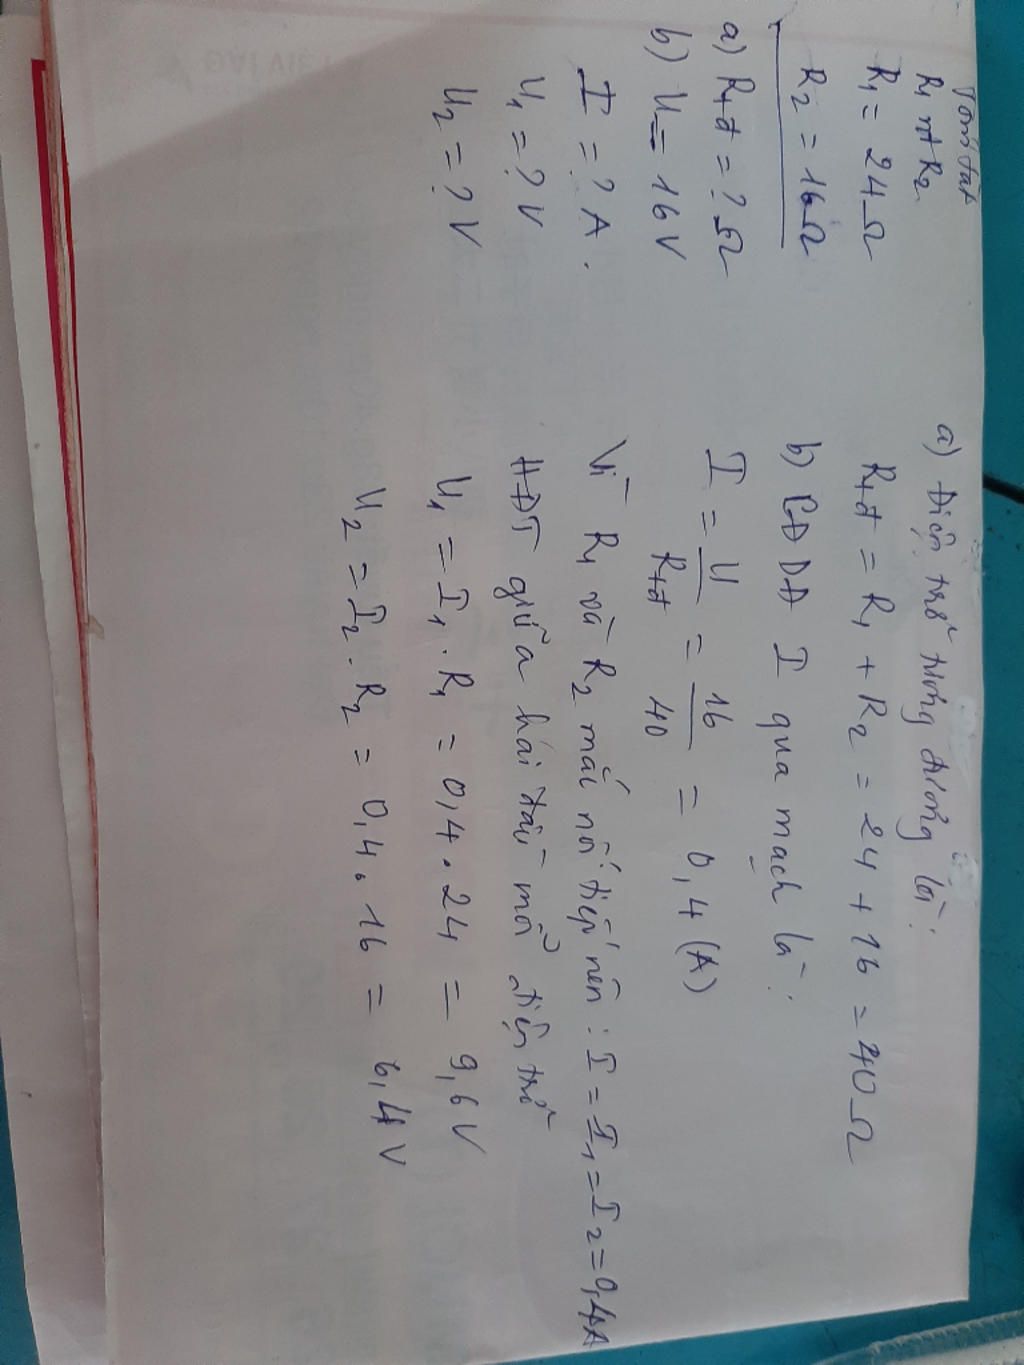 Tóm tắt
R1 nt R2
R1 = 24Ω
R2 = 16Ω
a) Rtđ = ? Ω
b) U = 16V
I = ? A.
U1 = ? V
U2 = ? V
a) Điện trở tương đương là:
Rtđ = R1 + R2 = 24 + 16 = 40Ω
b) CĐDĐ I qua mạch là:
I = U/Rtđ = 16/40 = 0,4 (A)
Vì R1 và R2 mắc nối tiếp nên: I = I1 = I2 = 0,4A
HĐT giữa hai đầu mỗi điện trở
U1 = I1 . R1 = 0,4 . 24 = 9,6V
U2 = I2 . R2 = 0,4 . 16 = 6,4V